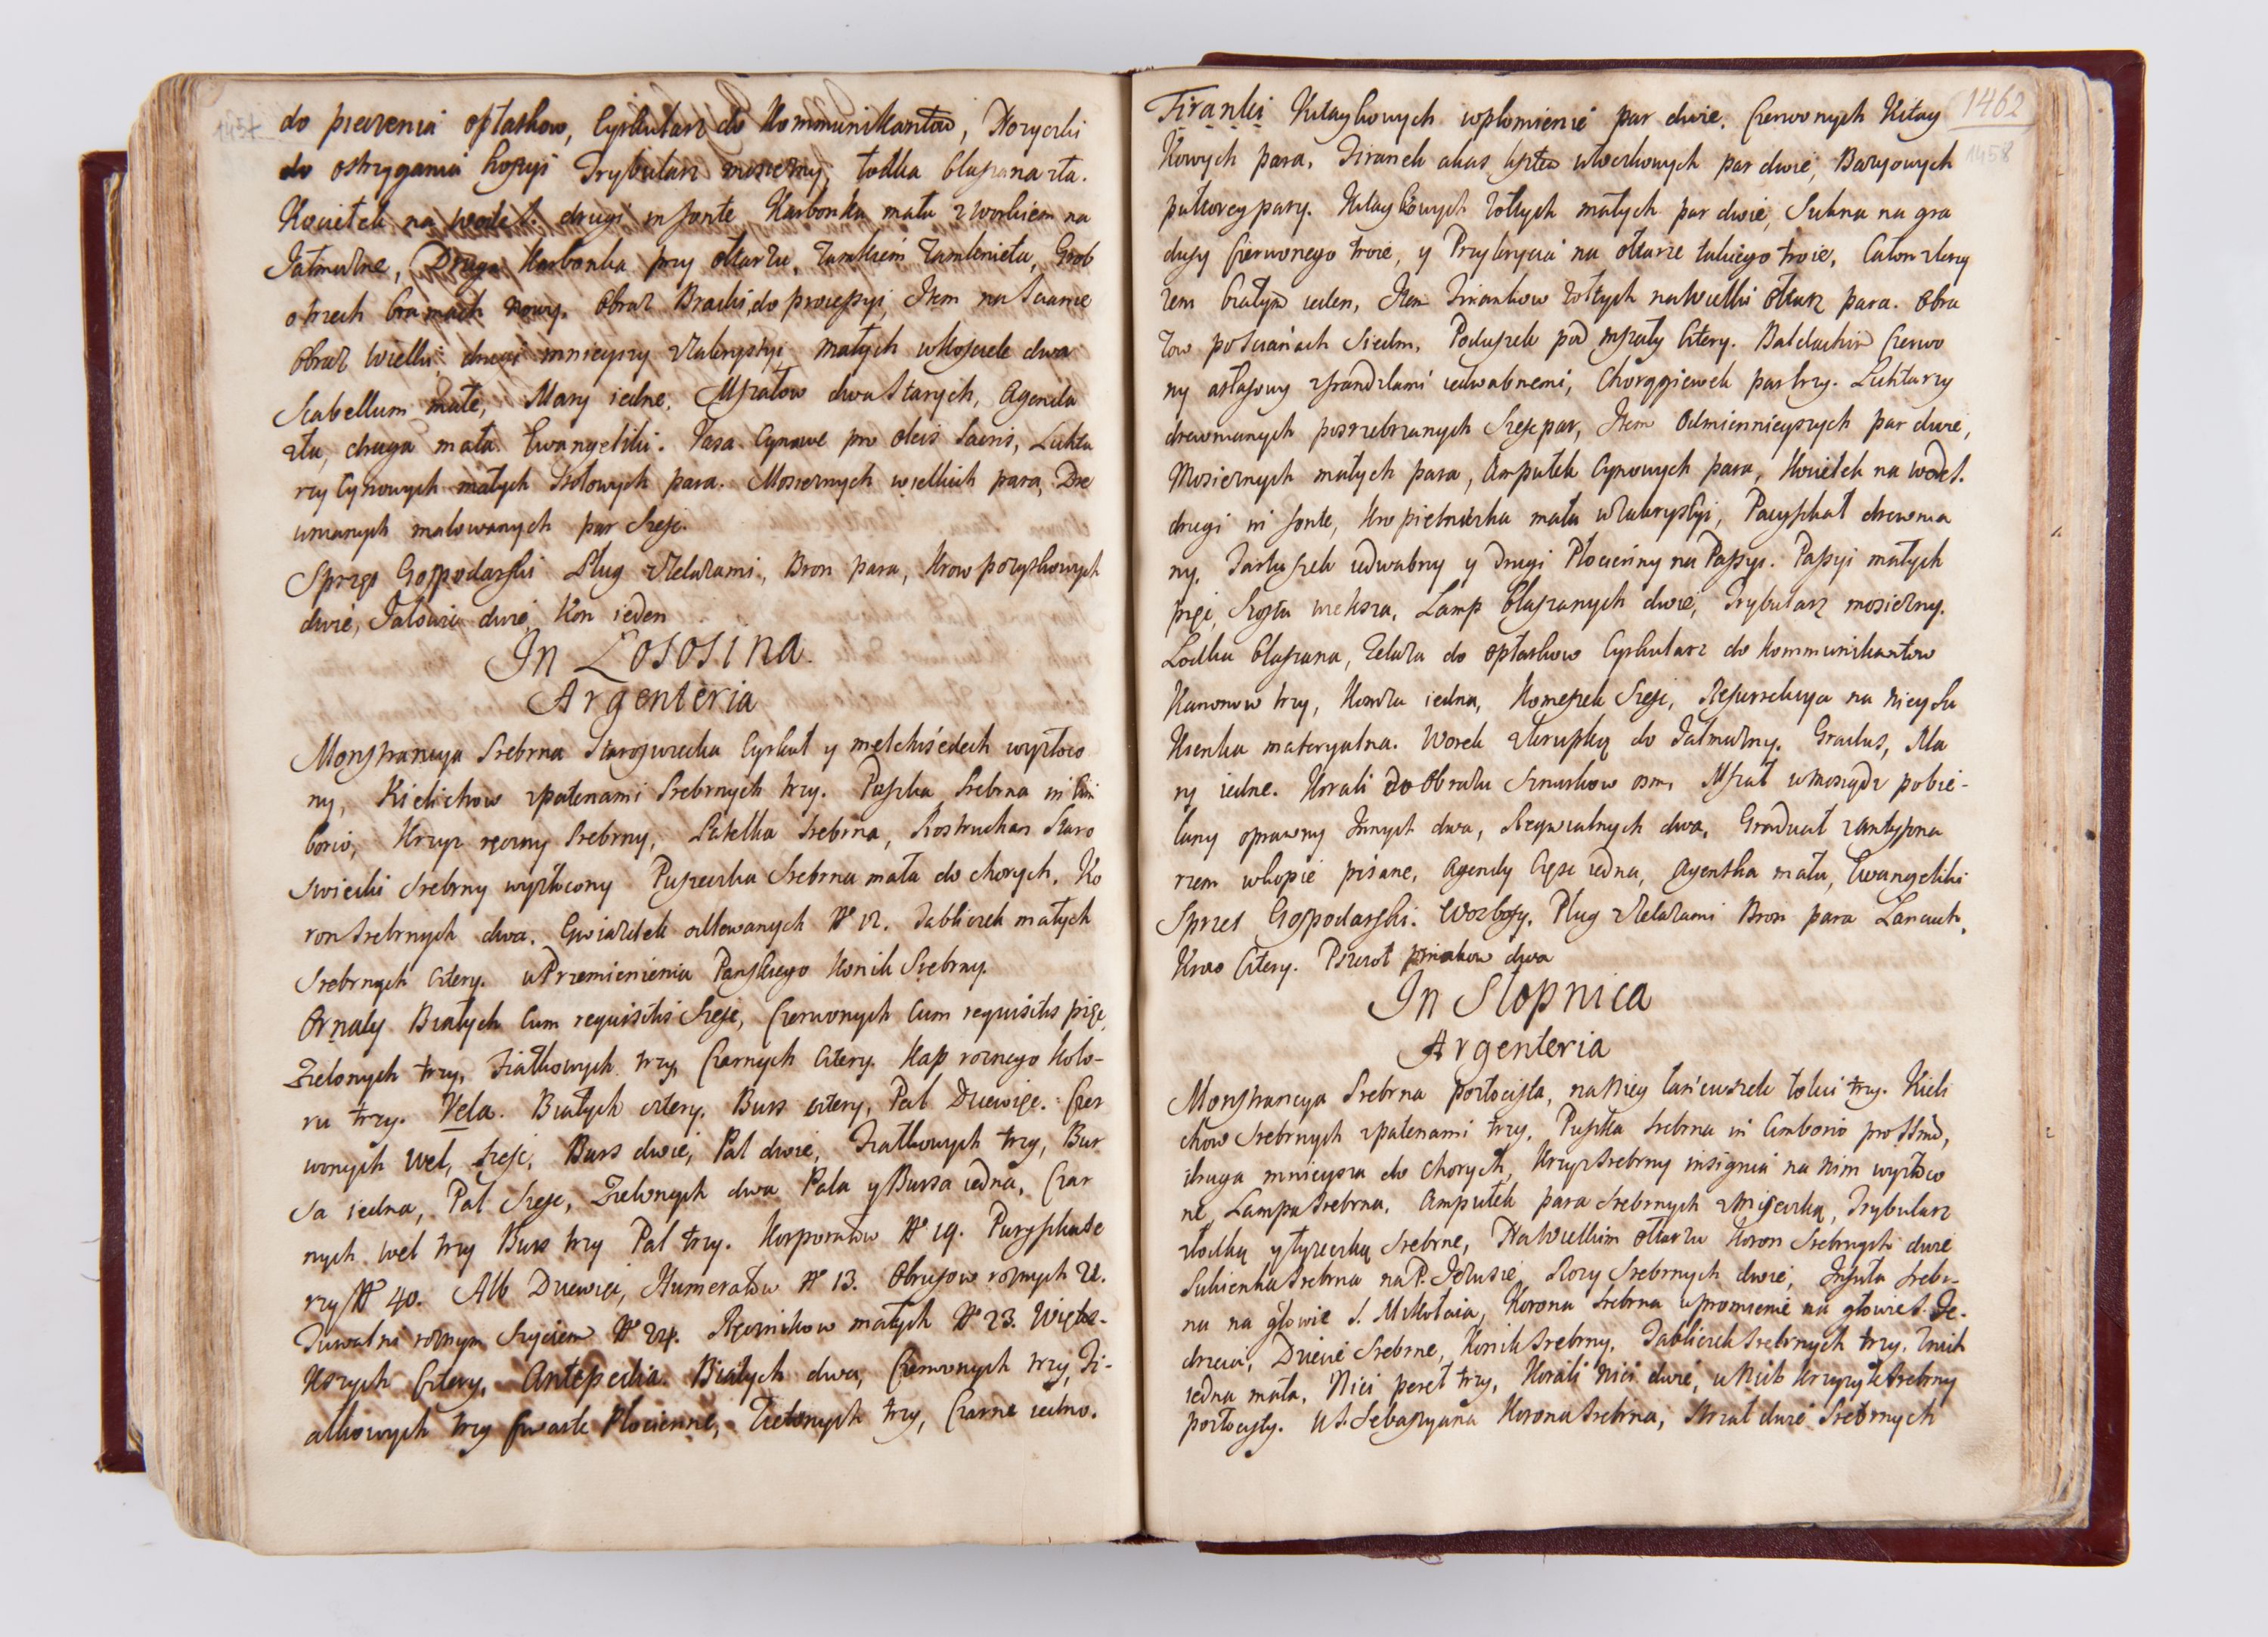 1457
do pieczenia opłatkow, Cyrkularz do Kommunikantow, Nozyczki
do ostrzygania hostyi Trybularz mosiężny, łodka blaszana zła.
Kociełek na wodę S. drugi in fonte Karbonka mała z workiem na
Jałmużne, Druga Karbonka przy ołtarzu, zamkiem zamknieta, Grob
o trzech bramach nowy. Obraz Bracki do processyi, Item na scianie
Obraz wielki, drugi mnieyszy w Zakrystyi małych w kosciele dwa
Scabellum małe, Mary iedne. Mszałow dwa starych, Agenda
zła, druga mała Ewangeliki. Vasa Cynowe pro oleis sacris, Lichta
rzy Cynowych małych stołowych para. Mosieznych wielkich para, Dre
wnianych malowanych par szesc.
Sprzęt Gospodarski Pług z zelazami, Bron para, Krow pozyskowych
dwie, Jałowic dwie, Kon ieden
In Łososina.
Argenteria
Monstrancya Srebrna Staroswiecka Cyrkuł y melchisedech wyzłoco
ny, Kielichow z patenami srebrnych trzy. Puszka srebrna in Cim
borio, Krzyz ręczny srebrny, Łatelka srebrna, Rostruchan Staro
swiecki srebrny wyzłocony Puszeczka srebrna mała do chorych, Ko
ron srebrnych dwa. Gwiazdek odlewanych No 12. Tabliczek małych
Srebrnych cztery. u Przemienienia Panskiego Konik Srebrny.
Ornaty Białych cum requisitis szesc, Czerwonych cum requisitis pięc,
Zielonych trzy, Fiałkowych trzy, Czarnych cztery. Kap roznego kolo-
ru trzy. Vela. Białych cztery, Burs cztery, Pal Dziewięc. Czer
wonych wel, szesc, Burs dwie, Pal dwie, Fiałkowych trzy, Bur
sa iedna, Pal szesc, Zielonych dwa Pala y Bursa iedna, Czar
nych wel trzy Burs trzy Pal trzy. Korporałow No 19. Puryfikate
rzy No 40. Alb Dziewięc, Humerałow No 13. Obrusow roznych 22.
Tuwalni roznym szyciem No 24. Ręcznikow małych No 23. Więk-
kszych cztery. Antepedia. Białych dwa, Czerwonych trzy, Fi-
ałkowych trzy czwarte Płocienne, Zielonych trzy, Czarne iedno.
1462
1458
Firanki Kitaykowych w płomienie par dwie. Czerwonych Kitay
kowych para, Firanek atłas w czkowych par dwie, Bazyowych
pułtorey pary. Kitaykowych zołtych małych par dwie, Sukna na gra
dusy Czerwonego troie, y Przykrycia na ołtarze takiego troie, Całon z kozy
zem białym ieden, Item Firankow zołtych na Wielki ołtarz para. Obra
zow po scianach siedm, Poduszek pod mszały cztery. Baldachin Czerwo
ny atłasowy z frandzlami iedwabnemi, Chorągiewek par trzy. Lichtarzy
drewnianych posrebrzanych szesc par, Item odmiennieyszych par dwie,
Mosieznych małych para, Ampułek Cynowych para, Kociełek na wodę S.
drugi in fonte, Kropielniczka mała w Zakrystyi, Pacyfikał drewnia
ny, Fartuszek iedwabny y drugi Płocienny na Passyi. Passyi małych
pięc, Szosta weksza, Lamp blaszanych dwie, Trybularz mosiezny.
Łodka blaszana, Zelaza do opłatkow Cyrkularz do kommunikantow
Kanonow trzy, Komża iedna, Komeszek szesc, Resurrekcya na niey Su
kienka materyalna. Worek z krupką do Jałmużny. Gradus, Ma
ry iedne. Korali do Obrazu sznurkow osm, Mszał w mosiądz pobie-
lany oprawny Innych dwa, Requialnych dwa, Graduał z antyfona
rzem w kopie pisane, Agendy Częsc iedna, Agentka mała, Ewangeliki
Sprzet Gospodarski. Woz bosy, Pług z zelazami Bron para Lancuch,
Krow cztery. Pszczoł pniakow dwa
In Słopnica
Argenteria
Monstrancya Srebrna pozłocista, na niey łancuszek tokci trzy. Kieli
chow srebrnych z patenami trzy, Puszka srebrna in Cimborio pro SSmo,
druga mnieysza do chorych, Krzyz srebrny insignia na nim wyzłoco
ne, Lampa srebrna, Ampułek para srebrnych z miseczką, Trybularz
z łodką y łyzeczką srebrne, Na Wielkim ołtarzu Koron srebrnych dwie
Sukienka srebrna na P. Jezusie Rozy srebrnych dwie, Infuła srebr-
na na głowie S. Mikołaia, Korona srebrna w promienie na głowie S. Ję-
drzeia, Dziecie srebrne, Konik srebrny. Tabliczek srebrnych trzy,
iedna mała, Nici pereł trzy, Korali nici dwie, u nich krzyzyk srebrny
pozłocisty. U S. Sebastyana Korona srebrna, Strzał dwie srebrnych